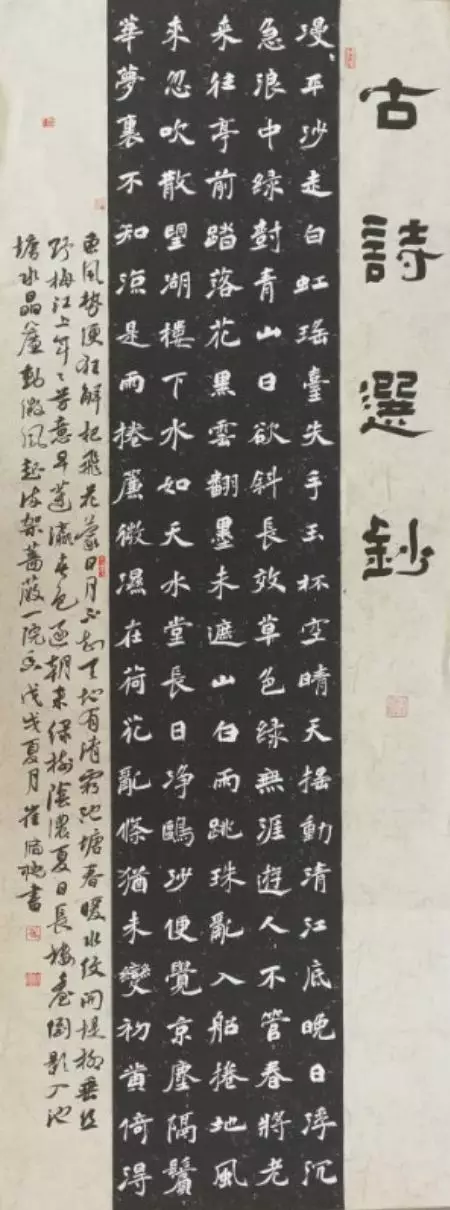 古詩選鈔
漫〻平沙走白虹瑤臺失手玉杯空晴天搖動清江底晚日浮沉
急浪中綠對青山日欲斜長效草色綠無涯遊人不管春將老
來往亭前踏落花黑雲翻墨未遮山白雨跳珠亂入船捲地風
來忽吹散望湖樓下水如天水堂長日净鷗沙便覺京塵隔鬢
華夢裏不知涼是雨捲簾微濕在荷花亂條猶未變初黃倚得
東風勢便狂解把飛花蒙日月不知天地有清霜池塘春暖水紋開堤柳垂絲
野梅江上年〻芳意早蓬瀛春色逐朝來綠樹陰濃夏日長樓臺倒影入池
塘水晶簾動微風起滿架薔薇一院香戊戌夏月崔書